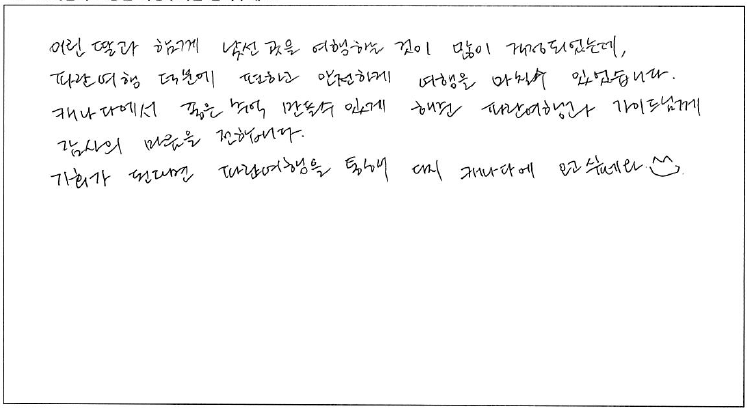 어린 딸과 함께 낯선 곳을 여행하는 것이 많이 걱정되었는데,
파란여행 덕분에 편하고 안전하게 여행을 마칠수 있었습니다.
캐나다에서 좋은 추억 만들수 있게 해준 파란여행과 가이드님께
감사의 마음을 전합니다.
기회가 된다면 파란여행을 통해 다시 캐나다에 오고 싶네요